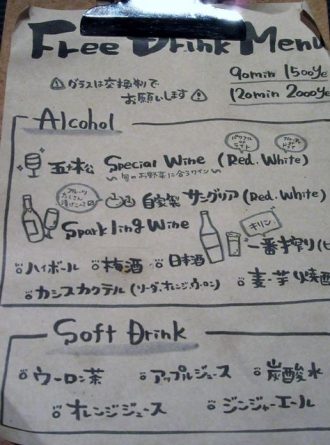 Free Drink Menu
90min 1500ye
⚠グラスは交換制で
お願いします⚠
120min 2000ye
Alcohol
五木松 Special Wine (Red. White)
旬のお野菜に合うワイン
フルーツ
たくさん
自家製 サングリア (Red. White)
Sparkling Wine
キリン
一番搾り(ビ
ハイボール 梅酒 日本酒 麦・芋焼酎
カシスカクテル (ソーダ.オレンジ.ウーロン)
Soft Drink
ウーロン茶 アップルジュース 炭酸水
オレンジジュース ジンジャーエール